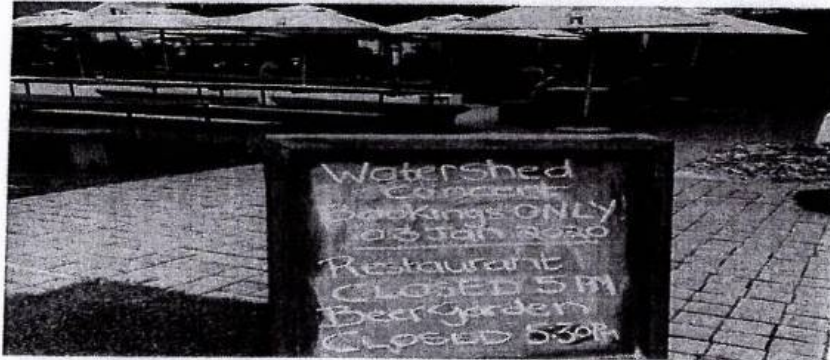 Watershed
Concert
Bookings ONLY
03 Jan 2020
Restaurant
CLOSED 5 PM
Beer Garden
CLOSED 5:30PM